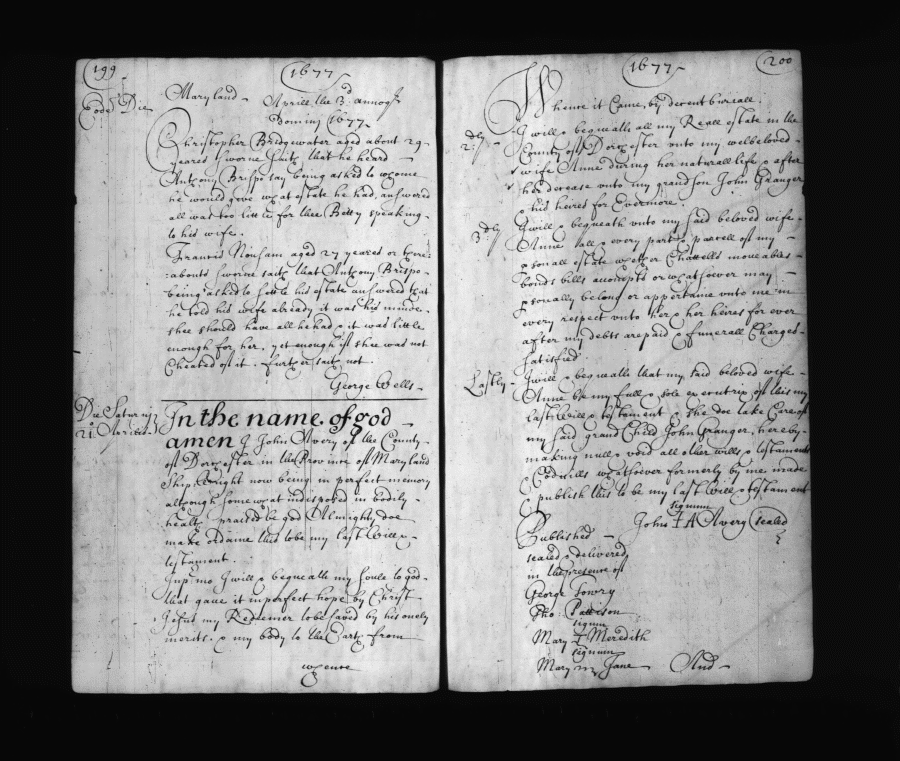 199
1677
Eode^m Die
Maryland Aprill the 3^d annoq^e
Dominj 1677
Christopher Bridgewater aged about 29
yeares sworne saith that he heard
Anthony Brispo say being asked to whome
he would give what estate he had, answered
all was too little for thee Betty speaking
to his wife.
Francis aged 27 yeares or there
abouts sworne saith that Anthony Brispo
being asked to settle his estate answered that
he told his wife already it was his minde
shee should have all he had & it was little
enough for her, yet enough if shee was not
Cheated of it. further saith not.
George Wells
Die Saturnj
21° Aprilis
In the name of god
amen I John Avery of the County
of Dorchester in the Province of Maryland
Ship Wright now being in perfect memory
although somewhat indisposed in bodily
health praised be god Almighty doe
make ordaine this to be my last Will &
testament.
Inp^r mo I will & bequeath my soule to god
that gave it in perfect hope by Christ
Jesus my Redeemer to be saved by his onely
merits. & my body to the Earth from
whence
1677
200
Whence it Came, by decent buriall.
2^dly I will & bequeath all my Reall estate in the
County of Dorchester unto my welbeloved
wife Anne during her naturall life & after
her decease unto my grandson John Granger
& his heires for Evermore.
3^dly I will & bequeath unto my said beloved wife
Anne all & every part & parcell of my
psonall estate whether Chattells moveables
bonds bills accompts or whatsoever may
psonally belong or appertaine unto me in
every respect unto her & her heires for ever
after my debts are paid & funerall Charges
satisfied
Lastly I will & bequeath that my said beloved wife
Anne be my full & sole executrix of this my
last Will & testament & she doe take Care of
my said grand Child John Granger, hereby
making null & void all other wills & testaments
& Codicills whatsoever formerly by me made
& publish this to be my last Will & testament
signum
John A Avery sealed
Published
sealed & delivered
in the presence of
George Towry
Tho: Pattison
signum
Mary Meredith
signum
Mary m Jane And